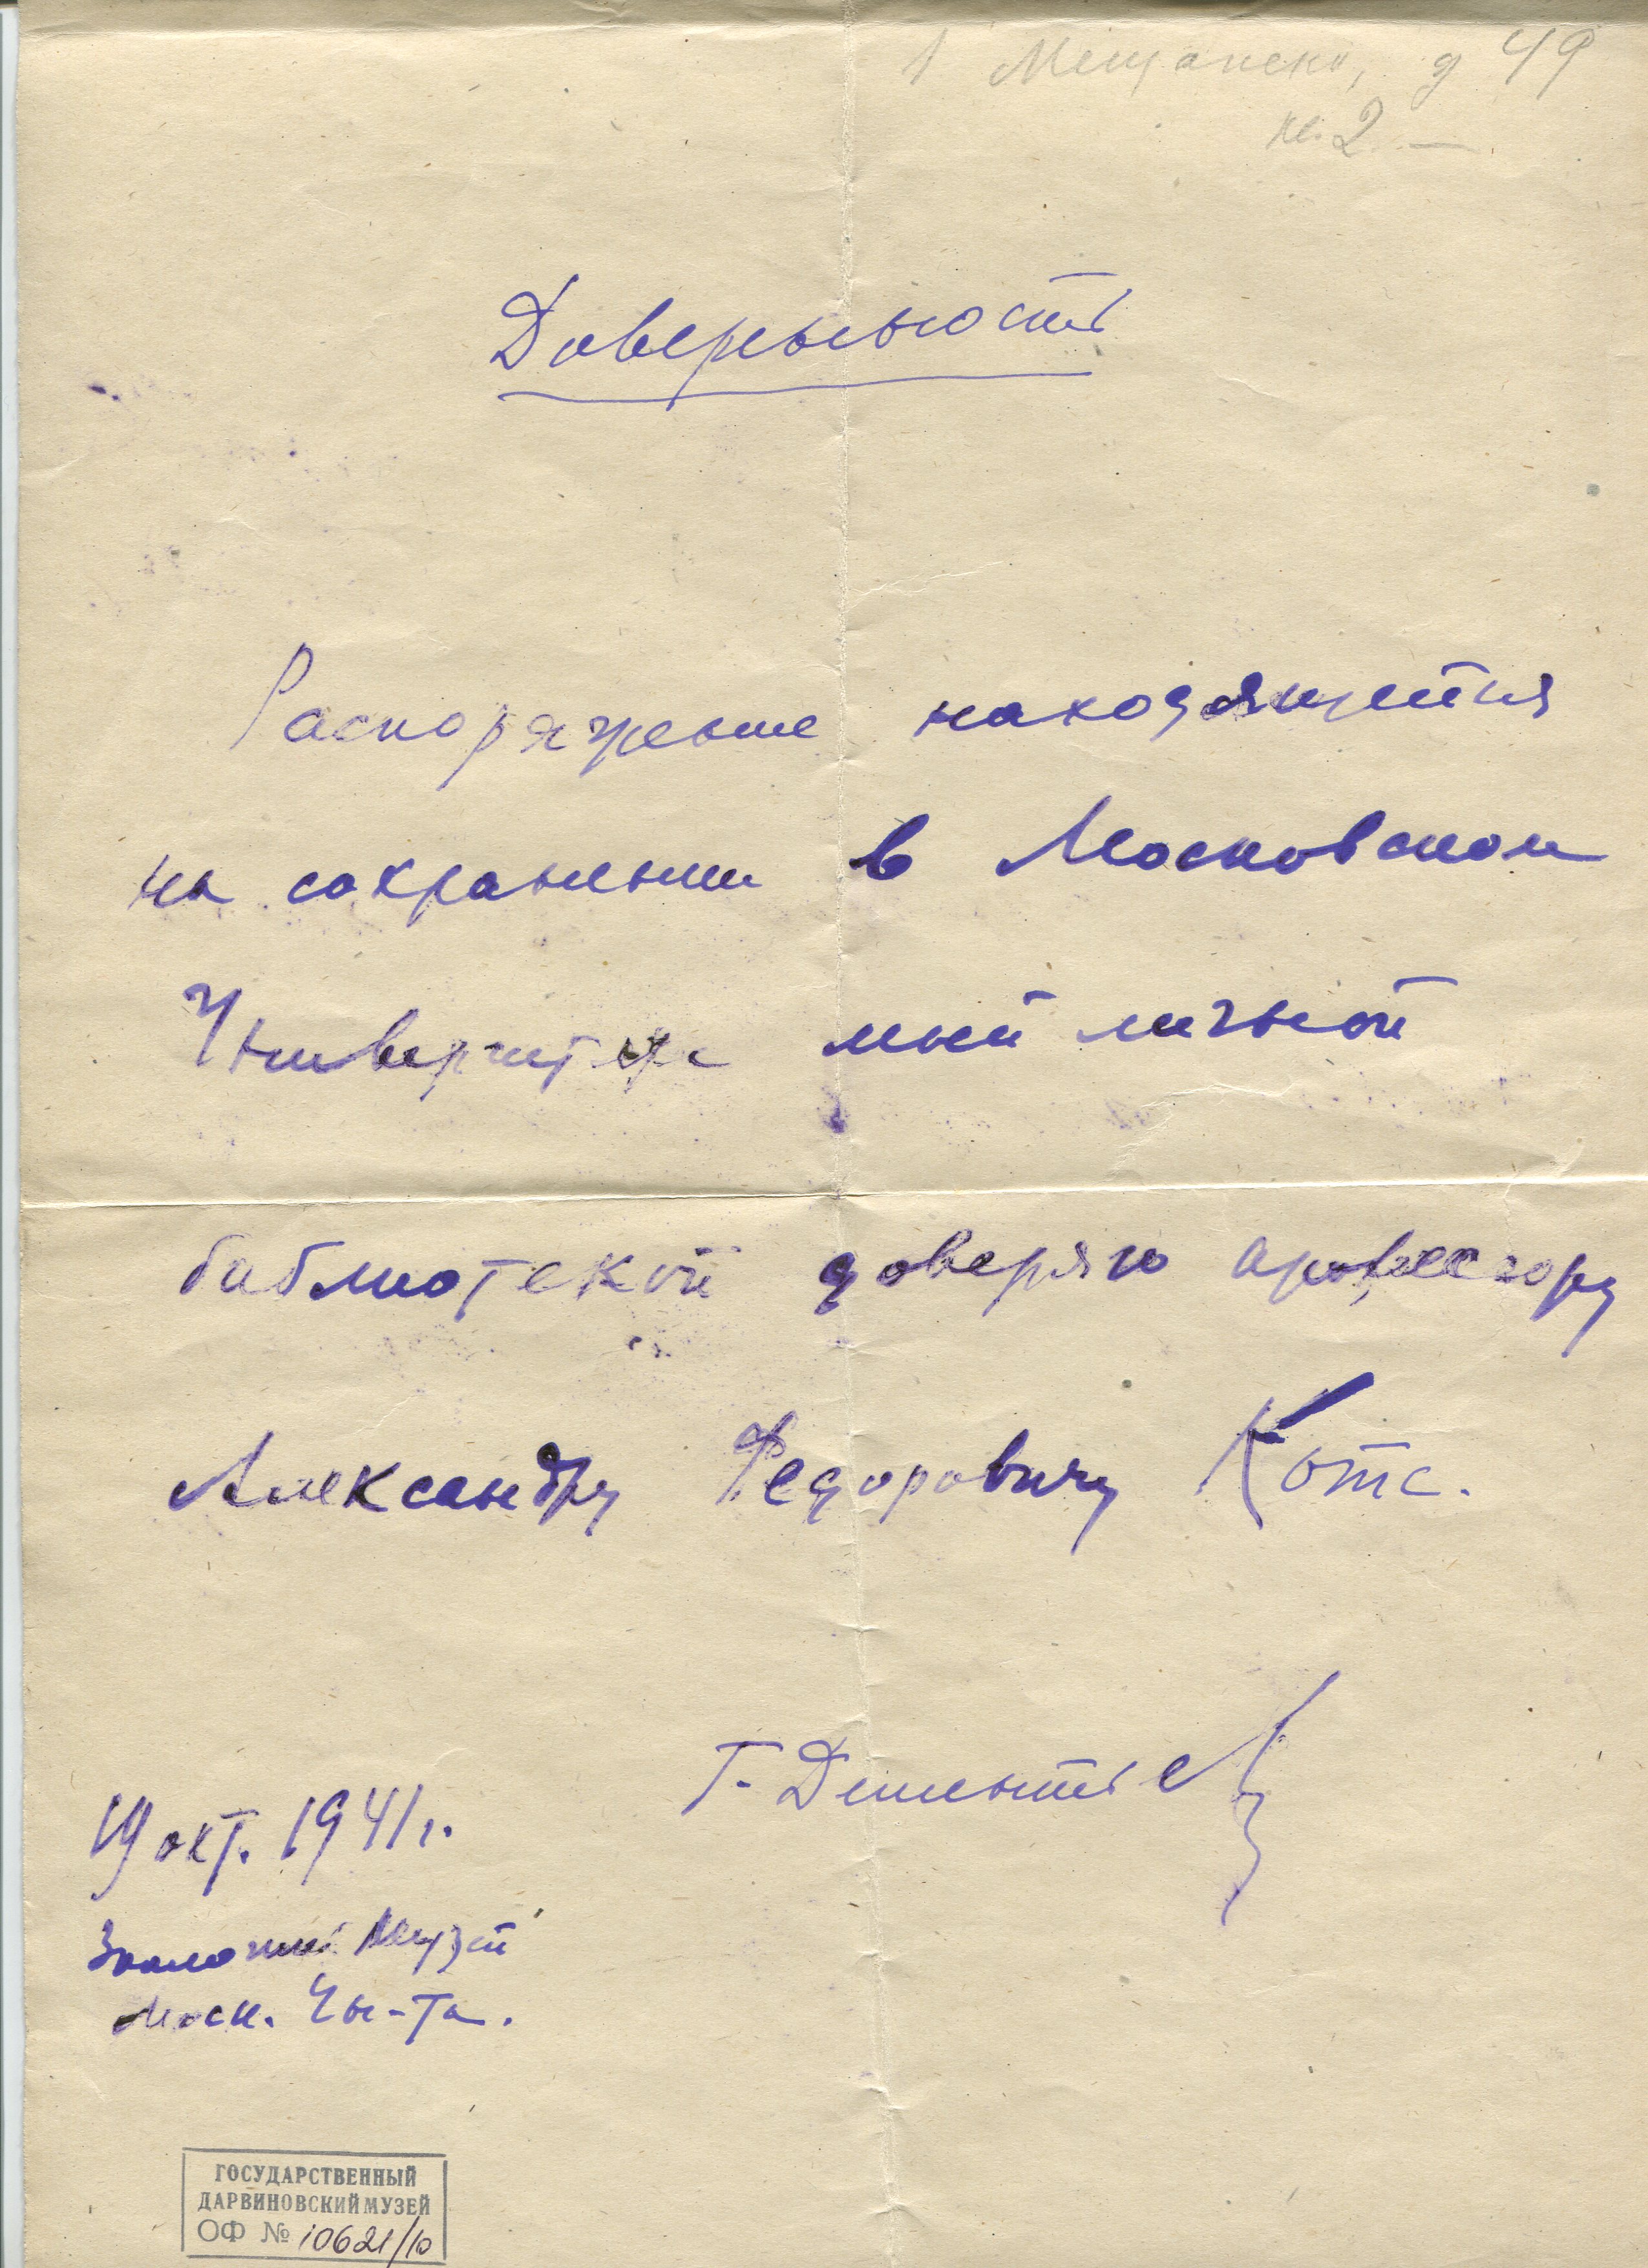 1 Мещанско, д 49
кв. 2. —
Доверенность
Распоряжение находящейся
на сохранении в Московском
Университете моей личной
библиотекой доверяю профессору
Александру Федоровичу Котс.
Г. Дементьев
19 окт. 1941 г.
Зоологич. Музей
Моск. Ун-та.
ГОСУДАРСТВЕННЫЙ
ДАРВИНОВСКИЙ МУЗЕЙ
ОФ № 10621/10